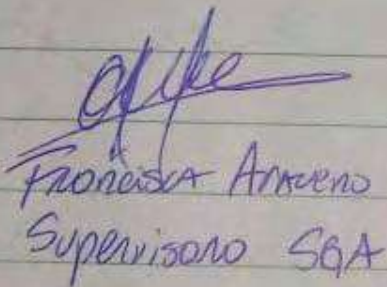 Francisca Aravena
Supervisora SGA